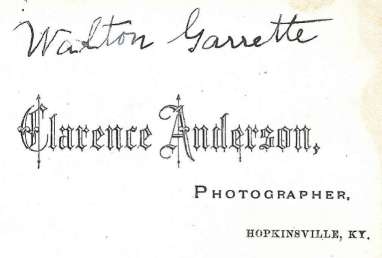 Walton Garrette
Clarence Anderson,
PHOTOGRAPHER,
HOPKINSVILLE, KY.